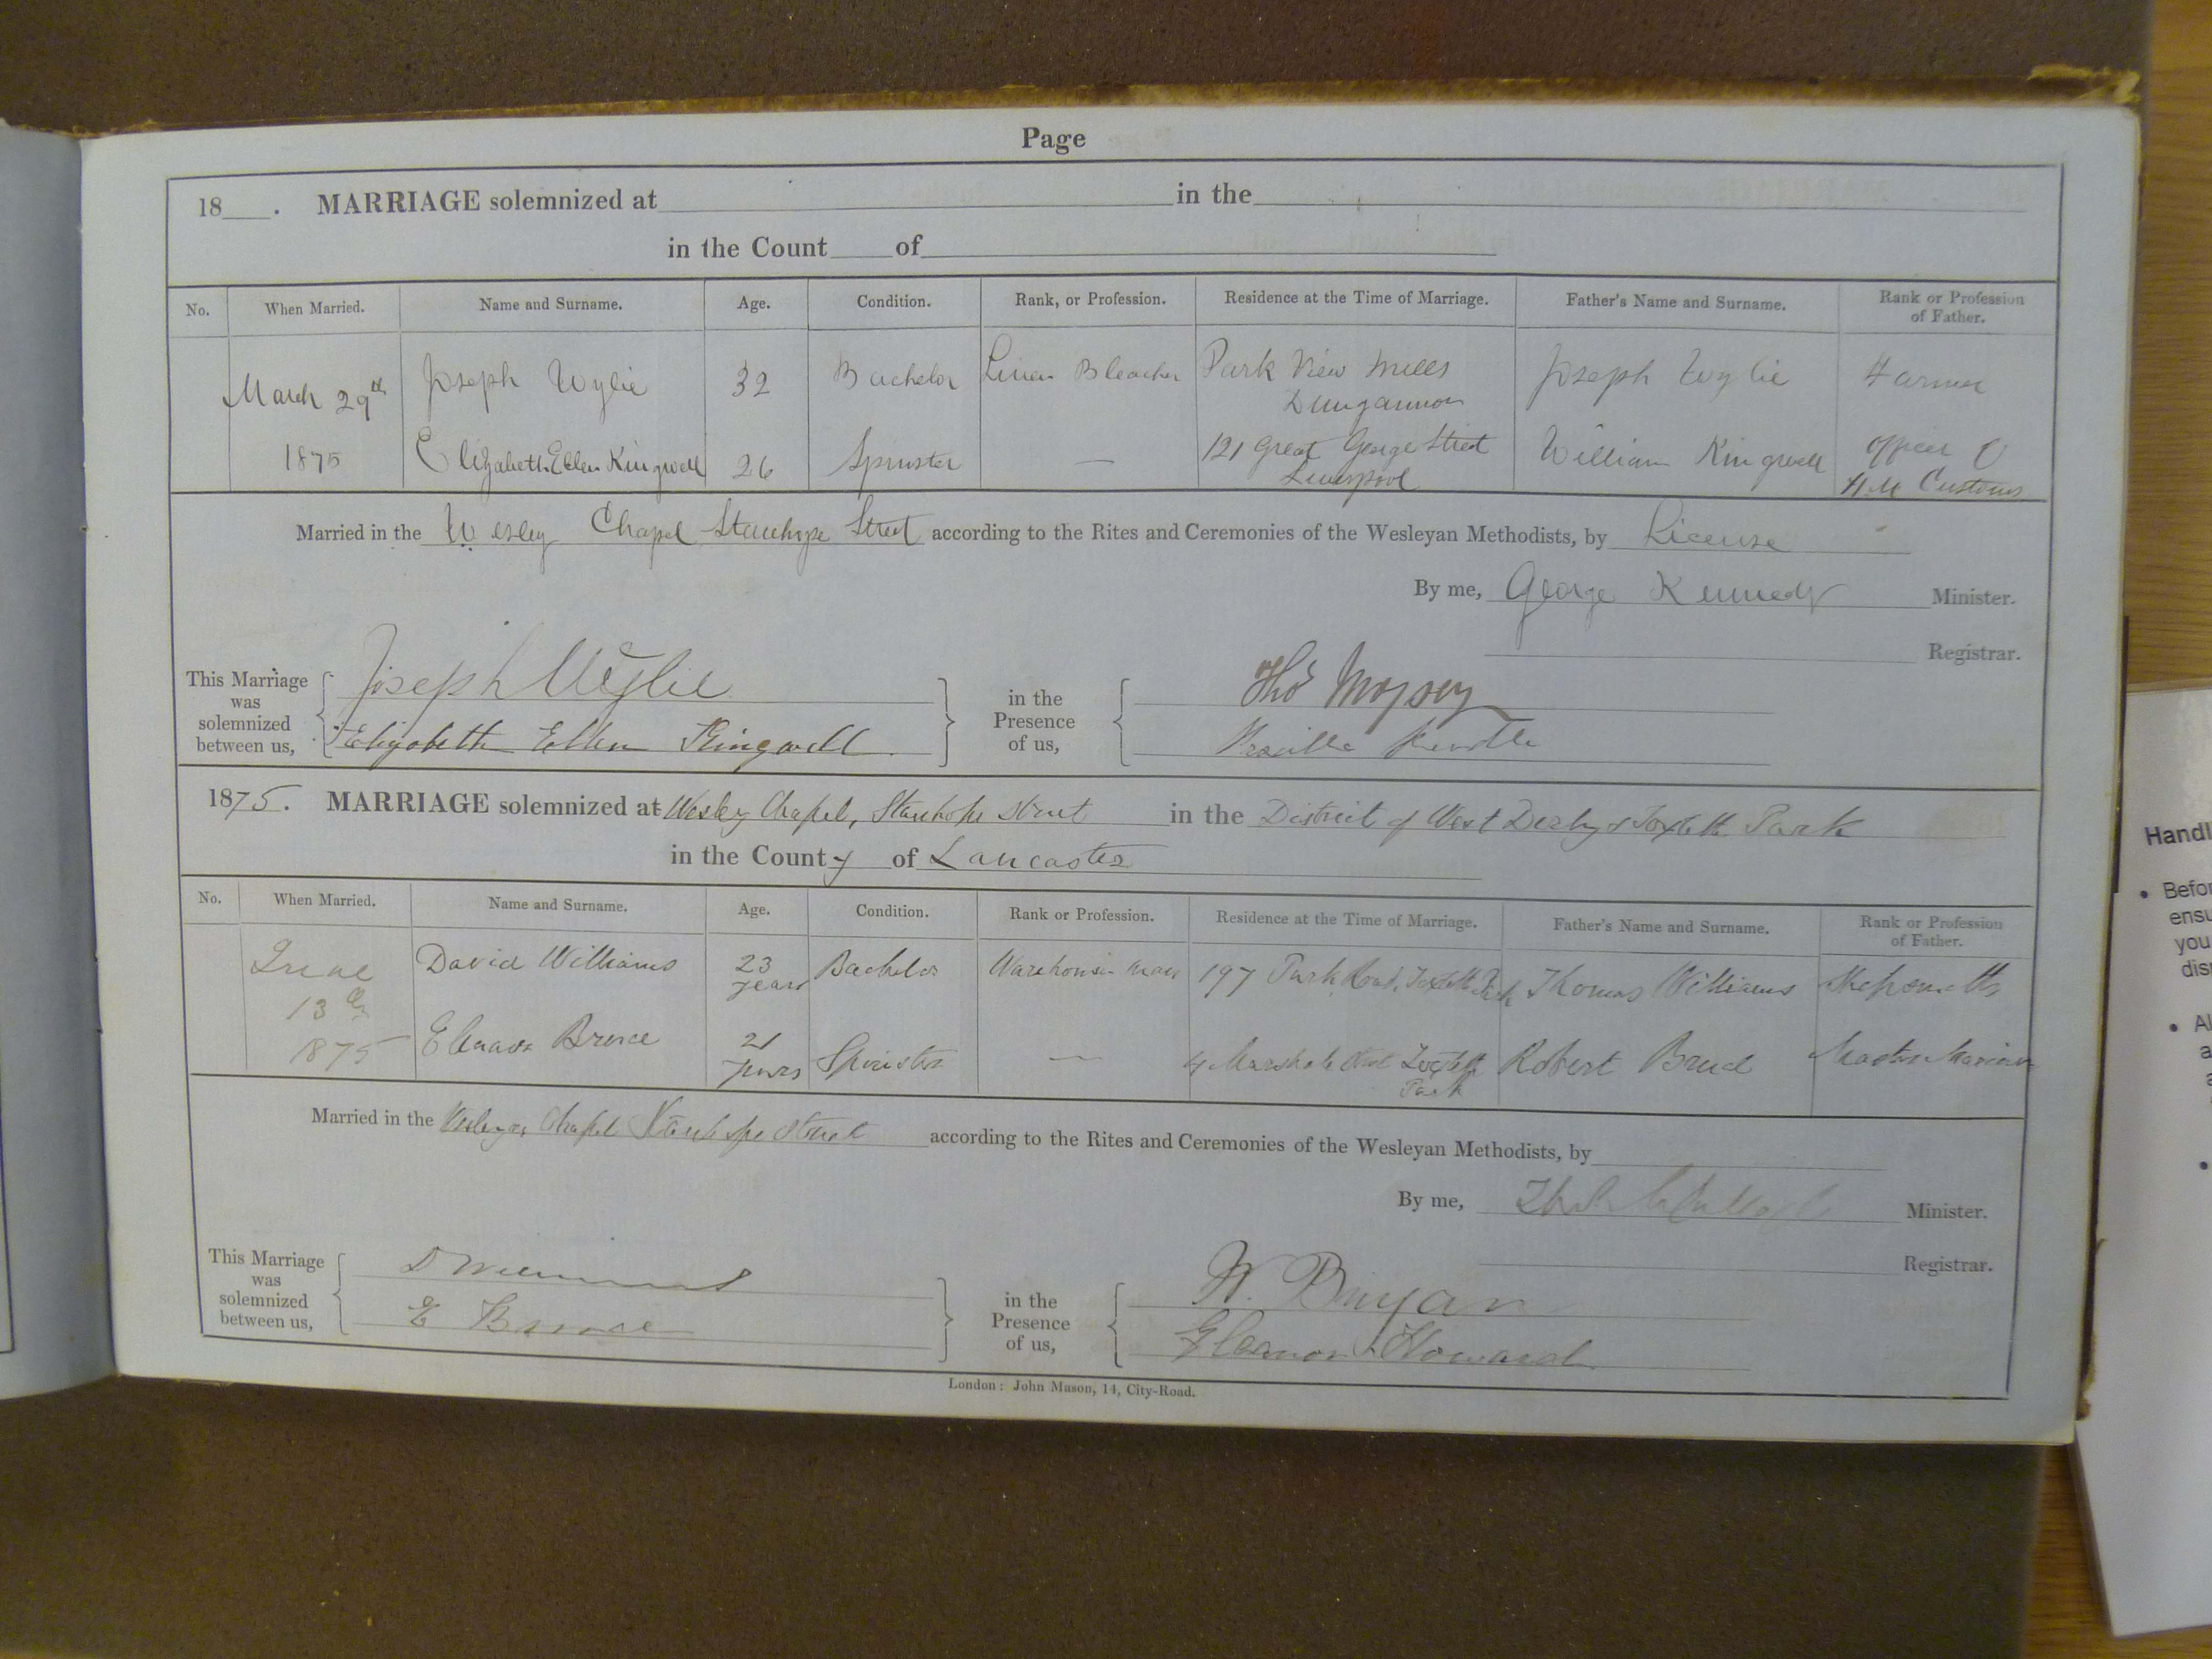 Page
18___. MARRIAGE solemnized at in the
in the Count of
No. When Married. Name and Surname. Age. Condition. Rank, or Profession. Residence at the Time of Marriage. Father's Name and Surname. Rank or Profession of Father.
March 29th Joseph Wylie 32 Bachelor Linen Bleacher Park View Mills Dungannon Joseph Wylie Farmer
1875 Elizabeth Ellen Kingwell 26 Spinster — 121 Great George Street Liverpool William Kingwell Officer H.M Customs
Married in the Wesley Chapel Stanhope Street according to the Rites and Ceremonies of the Wesleyan Methodists, by License
By me, George Kennedy Minister.
Registrar.
This Marriage was solemnized between us,
Joseph Wylie
Elizabeth Ellen Kingwell
in the Presence of us,
Thos
1875. MARRIAGE solemnized at Wesley Chapel, Stanhope Street in the District of West Derby & Toxteth Park
in the County of Lancaster
No. When Married. Name and Surname. Age. Condition. Rank or Profession. Residence at the Time of Marriage. Father's Name and Surname. Rank or Profession of Father.
June 13th David Williams 23 years Bachelor Warehouse man 197 Park Road, Toxteth Park Thomas Williams
1875 Bruce 21 years Spinster — 4 Street Toxteth Park Robert Master Mariner
Married in the Chapel Stanhope Street according to the Rites and Ceremonies of the Wesleyan Methodists, by
By me, Minister.
Registrar.
This Marriage was solemnized between us,
D Williams
E Bruce
in the Presence of us,
Eleanor Howard
London: John Mason, 14, City-Road.
Handl
• Befor
ensu
you
dis
• Al
a